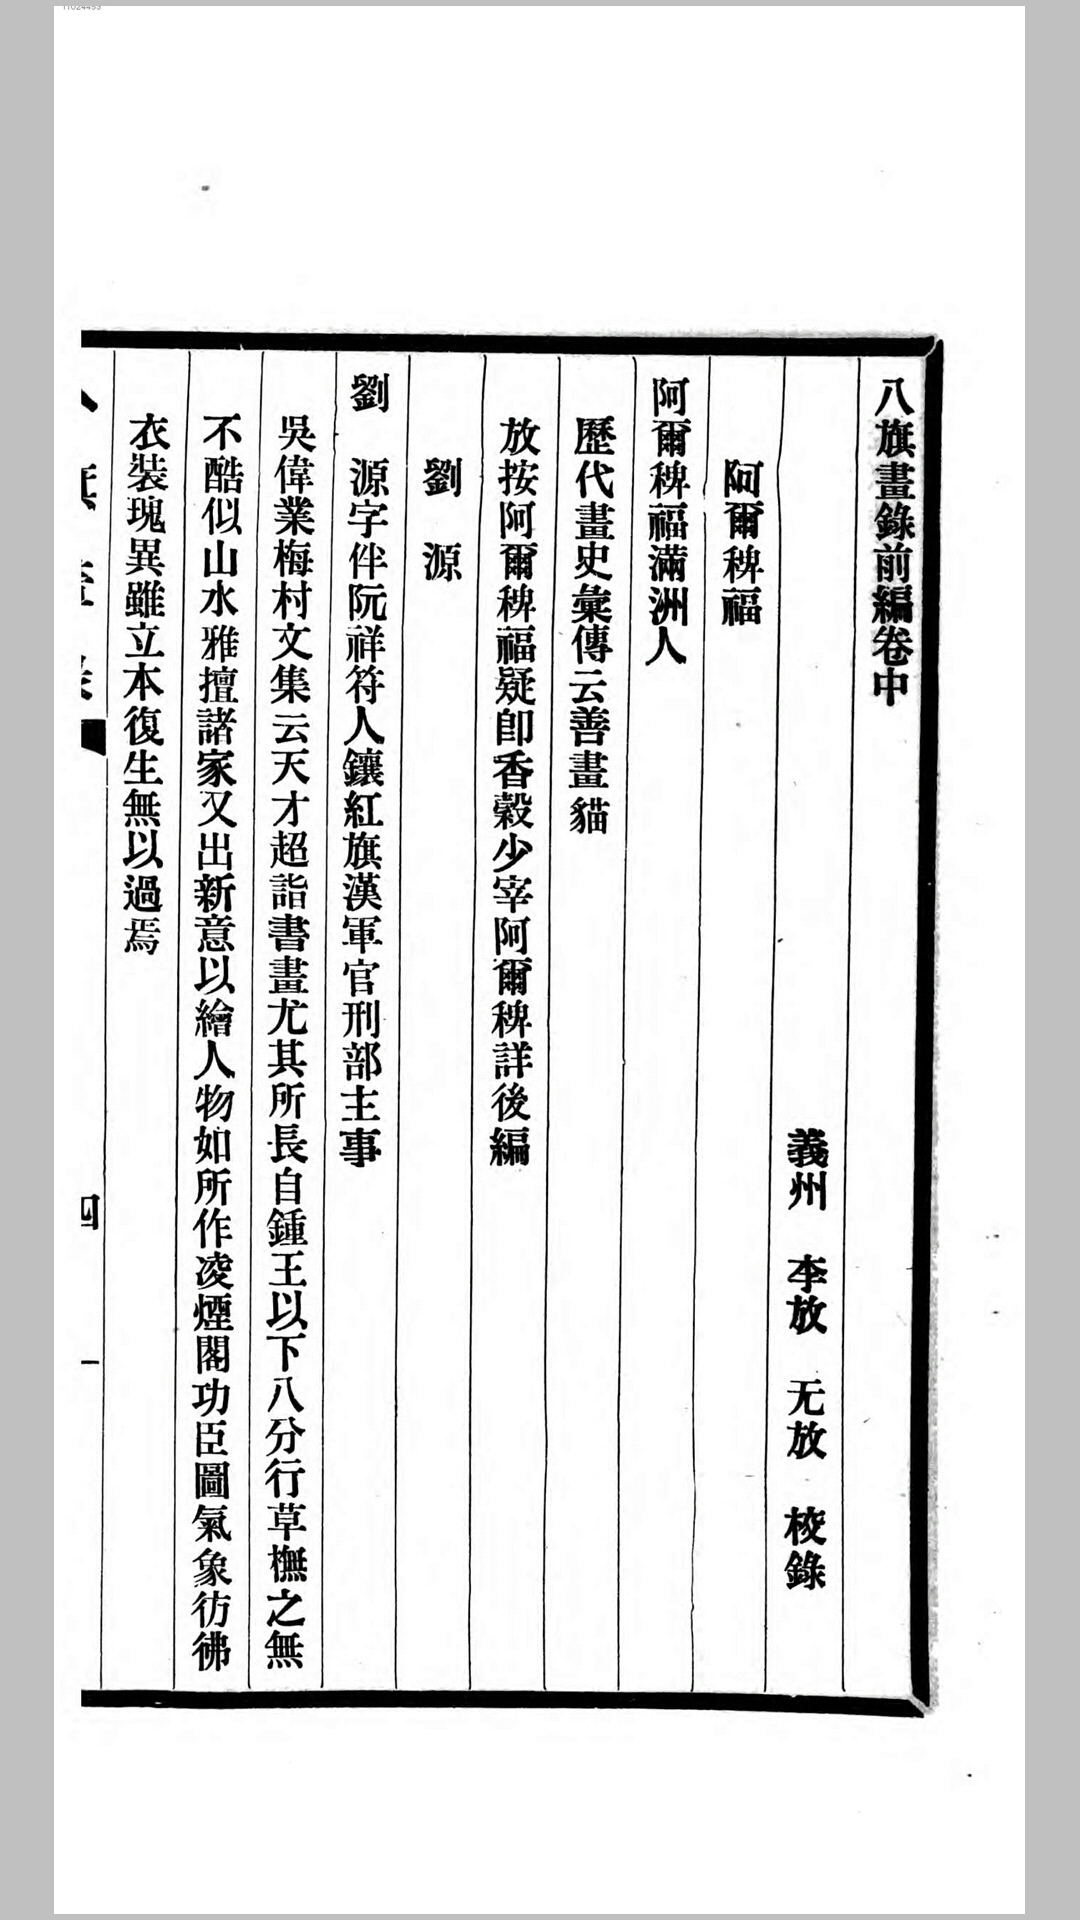 八旗畫錄前編卷中
義州　李放　无放　校錄
阿爾稗福
阿爾稗福滿洲人
歷代畫史彙傳云善畫貓
放按阿爾稗福疑卽香穀少宰阿爾稗詳後編
劉　源
劉　源字伴阮祥符人鑲紅旗漢軍官刑部主事
吳偉業梅村文集云天才超詣書畫尤其所長自鍾王以下八分行草橅之無
不酷似山水雅擅諸家又出新意以繪人物如所作凌煙閣功臣圖氣象彷彿
衣裝瑰異雖立本復生無以過焉
四
一